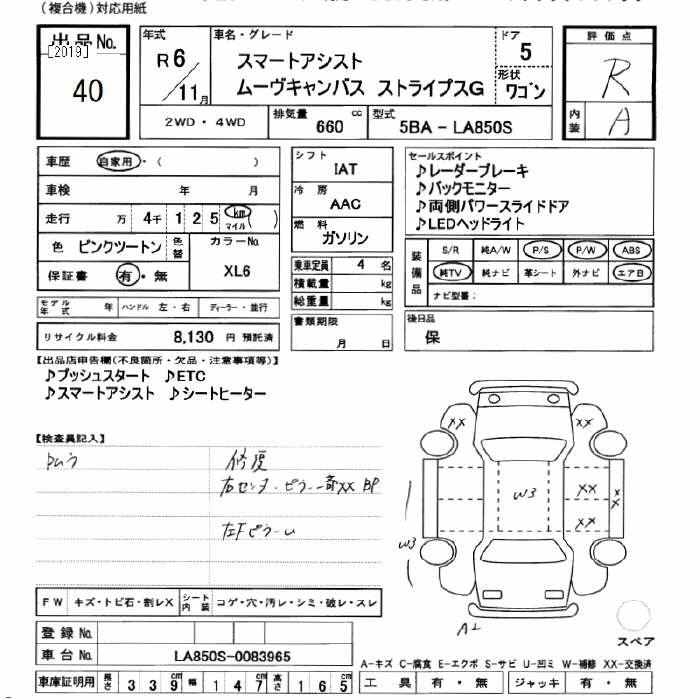 (複合機)対応用紙
出品No.
[2019]
40
年式
R6/11月
車名・グレード
スマートアシスト
ムーヴキャンバス ストライプスG
ドア
5
形状
ワゴン
評価点
R
内装
A
2WD・4WD
排気量 660 cc
型式 5BA - LA850S
車歴 自家用・( )
車検 年 月
走行 万 4千 1 2 5 km マイル ( )
色 ピンクツートン 色替
カラーNo.
XL6
保証書 有・無
シフト
IAT
冷房
AAC
燃料
ガソリン
乗車定員 4 名
積載量 kg
総重量 kg
セールスポイント
♪レーダーブレーキ
♪バックモニター
♪両側パワースライドドア
♪LEDヘッドライト
装備品
S/R 純A/W P/S P/W ABS
純TV 純ナビ 革シート 外ナビ エアB
ナビ型番:
モデル年式 年 ハンドル 左・右 ディーラー・並行
リサイクル料金 8,130 円 預託済
書類期限
月 日
後日品
保
【出品店申告欄(不良箇所・欠品・注意事項等)】
♪プッシュスタート ♪ETC
♪スマートアシスト ♪シートヒーター
【検査員記入】
修復
右センターピラー一部XX BP
左Fピラーム
XX
XX
W3
XX
XX
XX
W3
A1
スペア
FW キズ・トビ石・割レX
シート内装 コゲ・穴・汚レ・シミ・破レ・スレ
登録No.
車台No. LA850S-0083965
車庫証明用 長さ 3 3 9 cm 幅 1 4 7 cm 高さ 1 6 5 cm
A-キズ C-腐食 E-エクボ S-サビ U-凹ミ W-補修 XX-交換済
工具 有・無 ジャッキ 有・無